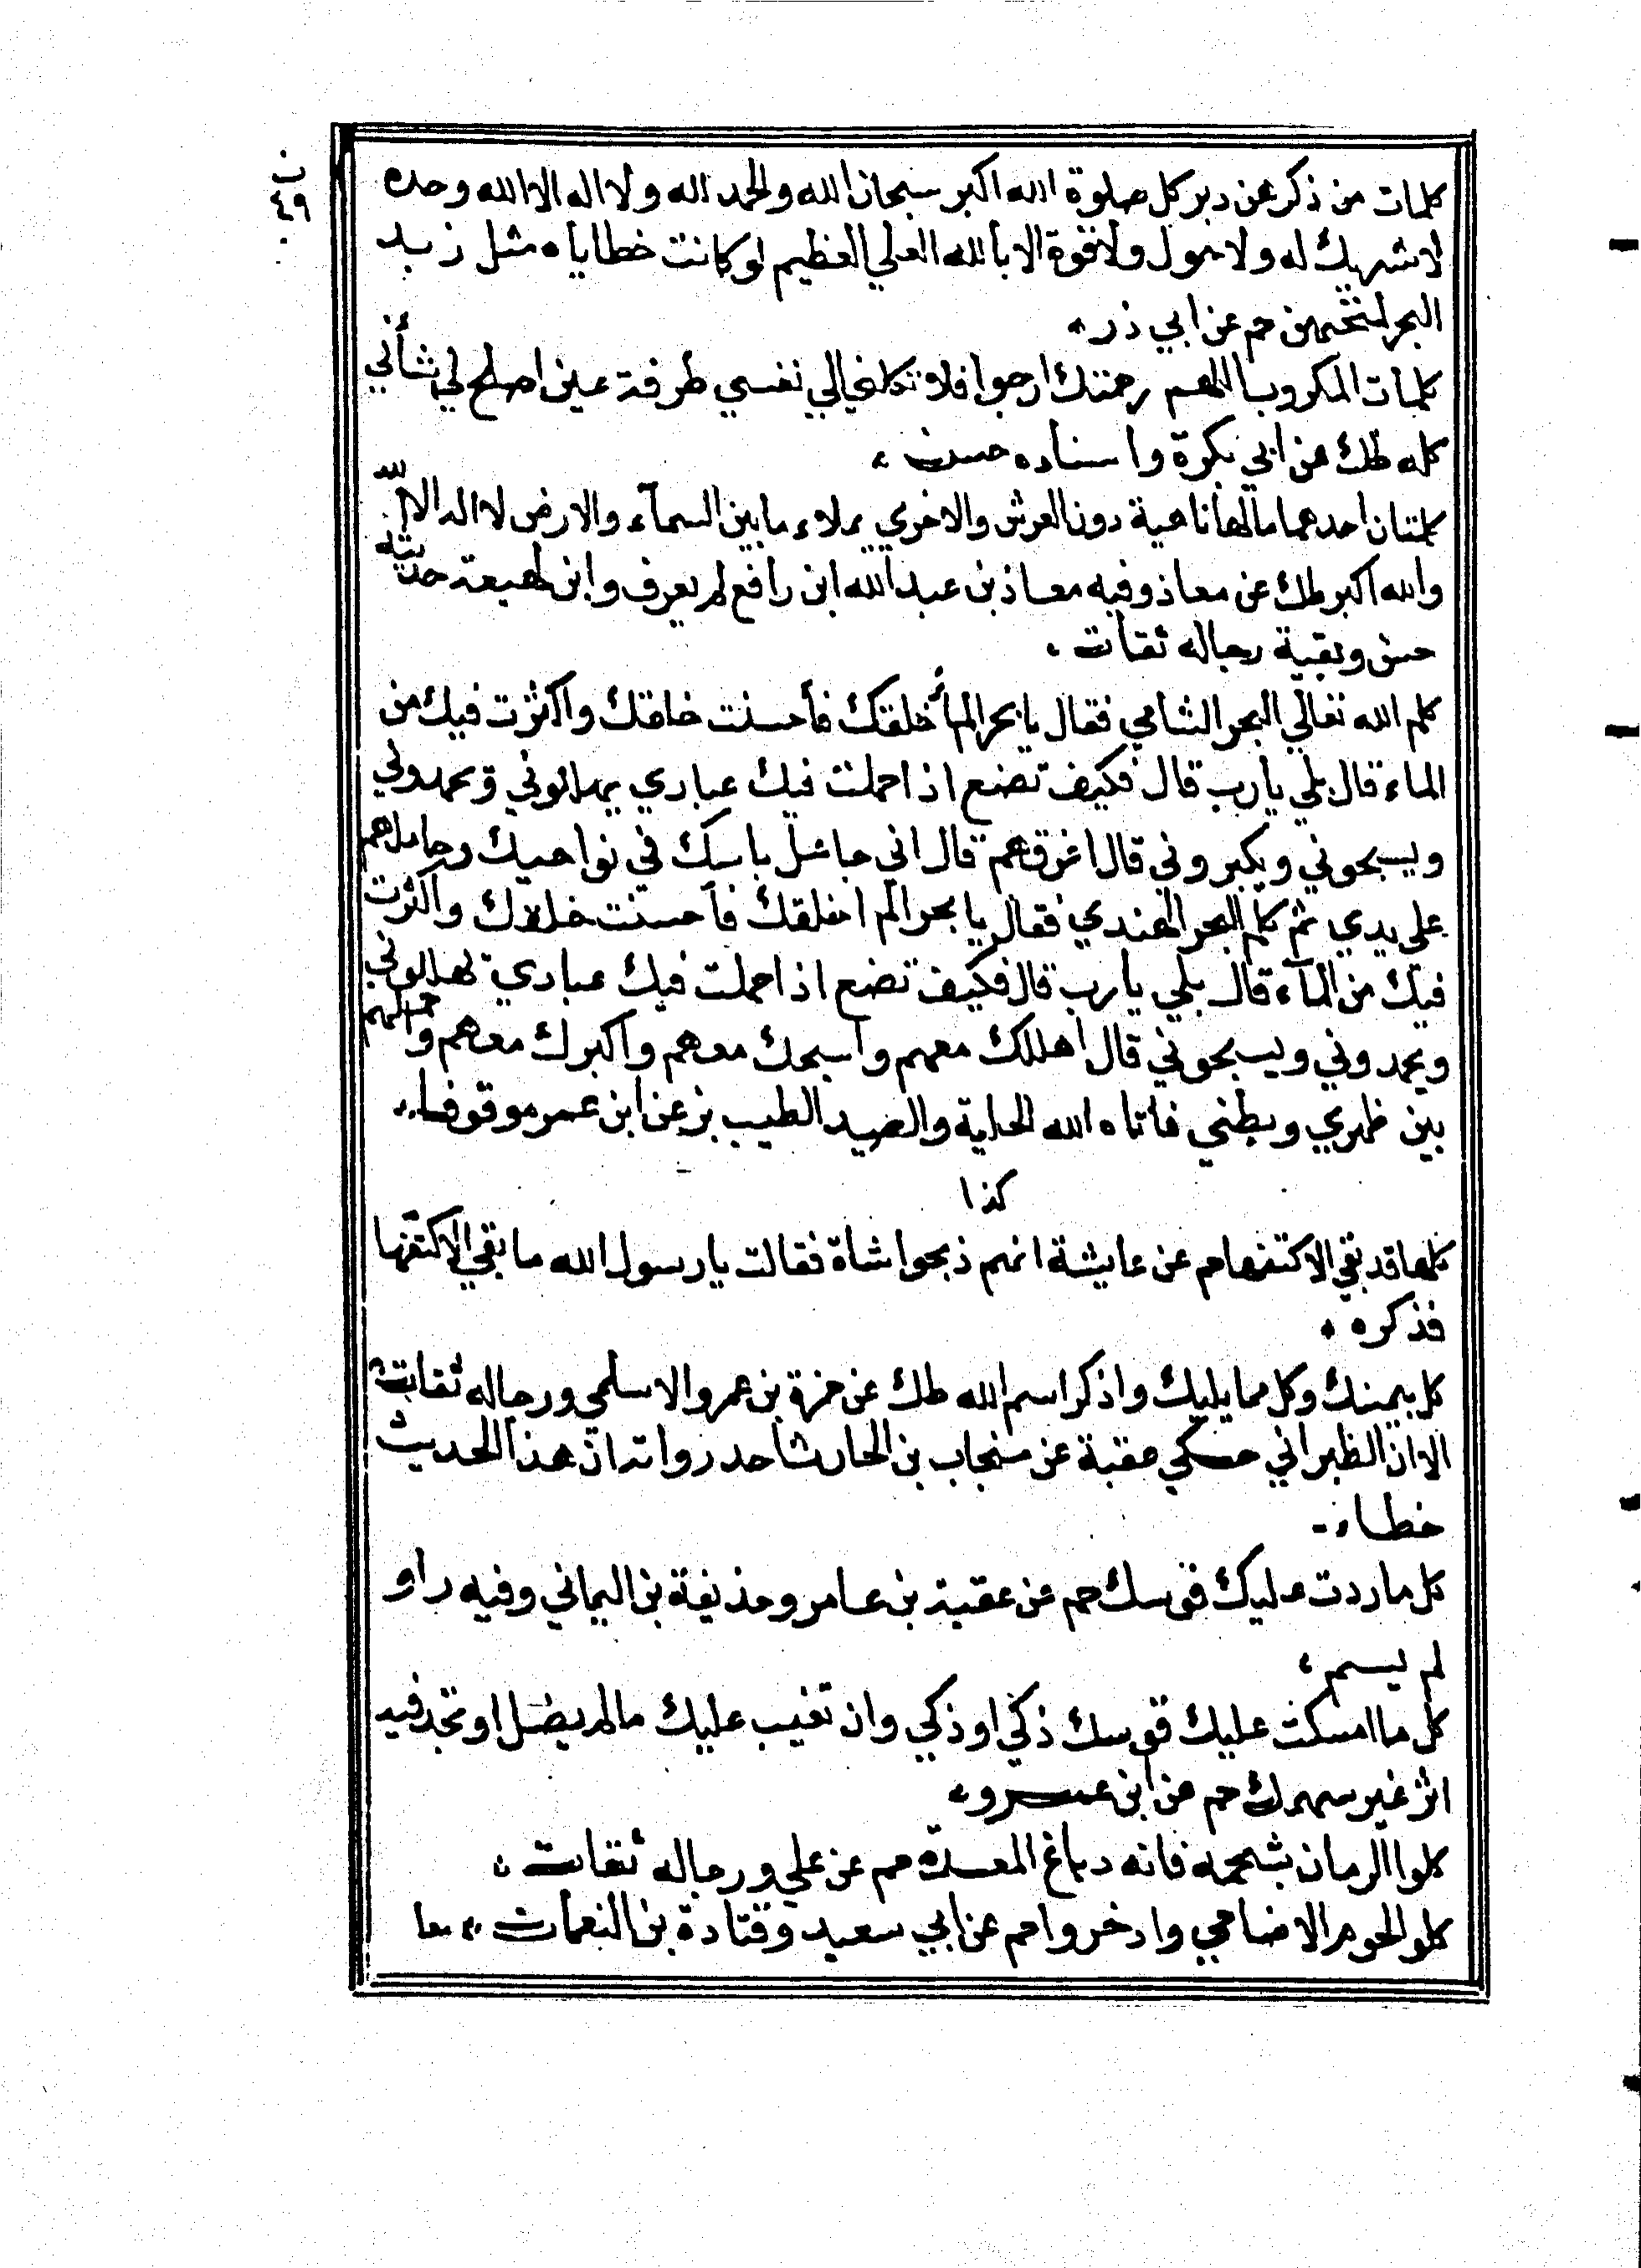 ن
٤٩
كلمات من ذكرهن دبر كل صلوة الله اكبر سبحان الله والحمد لله ولا اله الا الله وحده
لا شريك له ولا حول ولا قوة الا بالله العلي العظيم لو كانت خطاياه مثل زبد
البحر لمحتهن حم عن ابي ذر
كلمات المكروب اللهم رحمتك ارجوا فلا تكلني الي نفسي طرفة عين اصلح لي شأني
كله طك عن ابي بكرة واسناده حسن
كلمتان احدهما مالها ناهية دون العرش والاخري يملاء ما بين السمآء والارض لا اله الا الله
والله اكبر طك عن معاذ وفيه معاذ بن عبد الله ابن رافع لم يعرف وابن لهيعة حديثه
حسن وبقية رجاله ثقات
كلم الله تعالي البحر الشامي فقال يا بحر الم أخلقك فأحسنت خلقك واكثرت فيك من
الماء قال بلي يا رب قال فكيف تصنع اذا حملت فيك عبادي يهللوني ويحمدوني
ويسبحوني ويكبروني قال اغرقهم قال اني جاعل باسك في نواحيك وحاملهم
علي يدي ثم كلم البحر الهندي فقال يا بحر الم اخلقك فأحسنت خلقك واكثرت
فيك من المآء قال بلي يا رب قال فكيف تصنع اذا حملت فيك عبادي يهللوني
ويحمدوني ويسبحوني قال اهللك معهم واسبحك معهم واكبرك معهم واحملهم
بين ظهري وبطني فاتاه الله الحلية والصيد الطيب بز عن ابن عمر موقوفا
كذا
كلها قد بقي الا كتفها حم عن عايشة انهم ذبحوا شاة فقالت يا رسول الله ما بقي الا كتفها
فذكره
كل بيمينك وكل مما يليك واذكر اسم الله طك عن حمزة بن عمرو الاسلمي ورجاله ثقات
الا ان الطبراني حكي عقبة عن منجاب بن الحارث احد رواته ان هذا الحديث
خطاء
كل ما ردت عليك قوسك حم عن عقبة بن عامر وحذيفة بن اليماني وفيه راو
لم يسم
كل ما امسكت عليك قوسك ذكي او ذكي وان تغيب عليك مالم يضل او تجد فيه
اثر غير سهمك حم عن ابن عمرو
كلوا الرمان بشحمه فانه دباغ المعدة حم عن علي ورجاله ثقات
كلو الحوم الاضاحي وادخروا حم عن ابي سعيد وقتادة بن النعمان معا